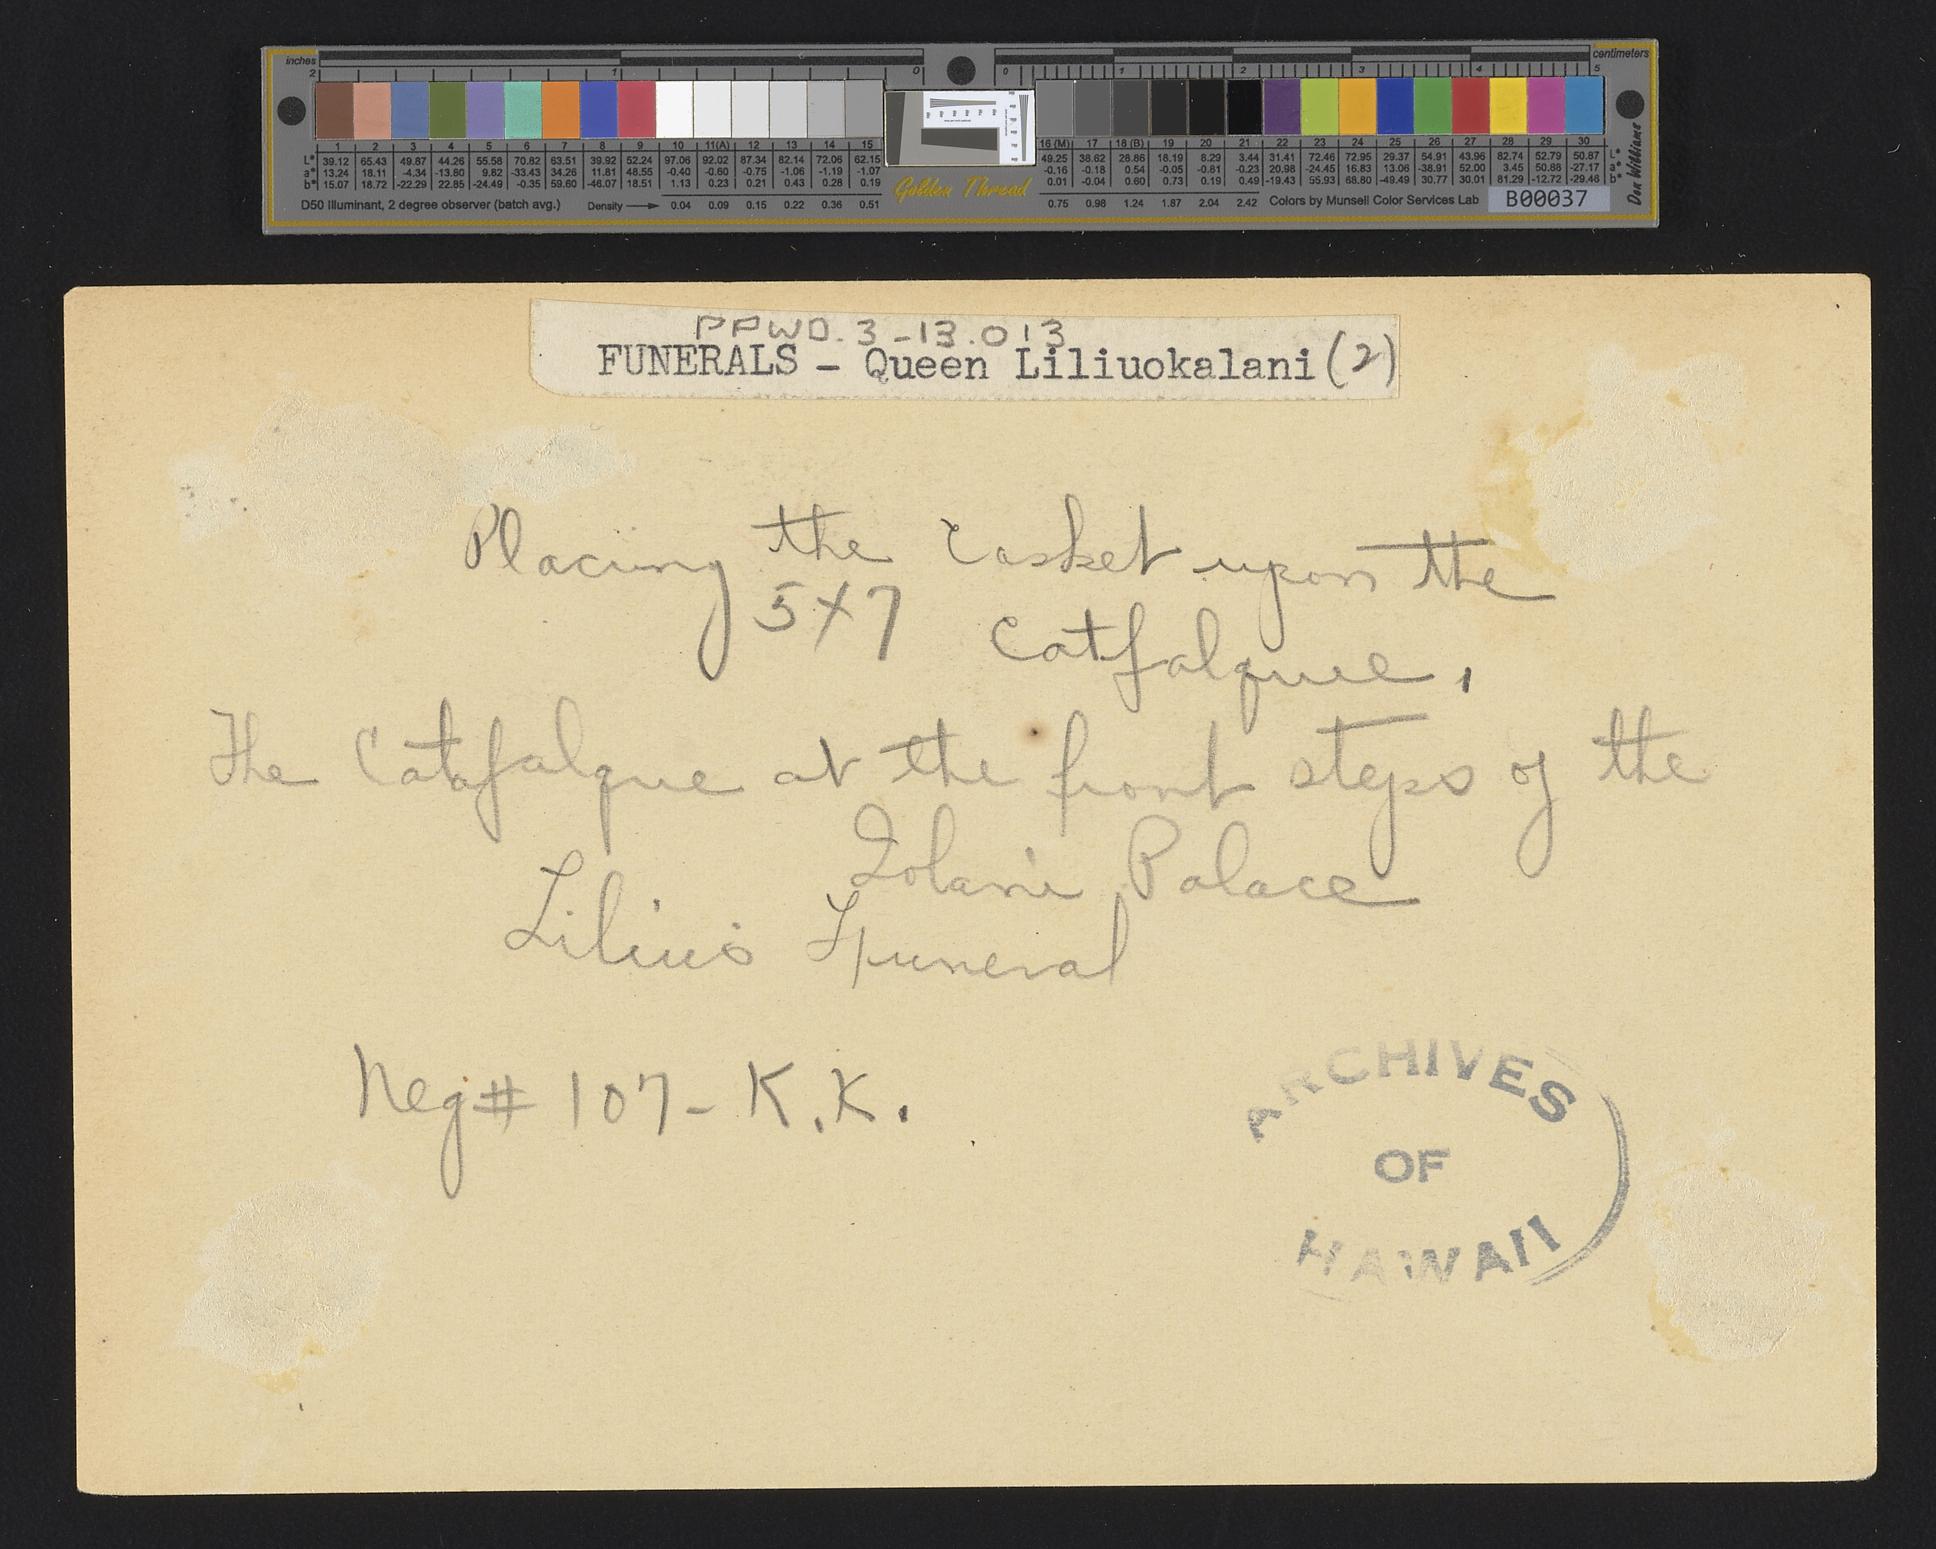 inches
centimeters
2 1 0 0 1 2 3 4 5
1 2 3 4 5 6 7 8 9 10 11(A) 12 13 14 15 16 (M) 17 18 (B) 19 20 21 22 23 24 25 26 27 28 29 30
L* 39.12 65.43 49.87 44.26 55.58 70.82 63.51 39.92 52.24 97.06 92.02 87.34 82.14 72.06 62.15 49.25 38.62 28.86 18.19 8.29 3.44 31.41 72.46 72.95 29.37 54.91 43.96 82.74 52.79 50.87 L*
a* 13.24 18.11 -4.34 -13.80 9.82 -33.43 34.26 11.81 48.55 -0.40 -0.60 -0.75 -1.06 -1.19 -1.07 -0.16 -0.18 0.54 -0.05 -0.81 -0.23 20.98 -24.45 16.83 13.06 -38.91 52.00 3.45 50.88 -27.17 a*
b* 15.07 18.72 -22.29 22.85 -24.49 -0.35 59.60 -46.07 18.51 1.13 0.23 0.21 0.43 0.28 0.19 0.01 -0.04 0.60 0.73 0.19 0.49 -19.43 55.93 68.80 -49.49 30.77 30.01 81.29 -12.72 -29.46 b*
D50 Illuminant, 2 degree observer (batch avg.) Density 0.04 0.09 0.15 0.22 0.36 0.51 Golden Thread 0.75 0.98 1.24 1.87 2.04 2.42 Colors by Munsell Color Services Lab B00037
Don Williams
PPWD.3-13.013
FUNERALS - Queen Liliuokalani (2)
Placing the Casket upon the
5x7 Catfalque,
The Catafalque at the front steps of the
Iolani Palace
Liliu's Funeral
Neg# 107- K.K.
ARCHIVES
OF
HAWAII